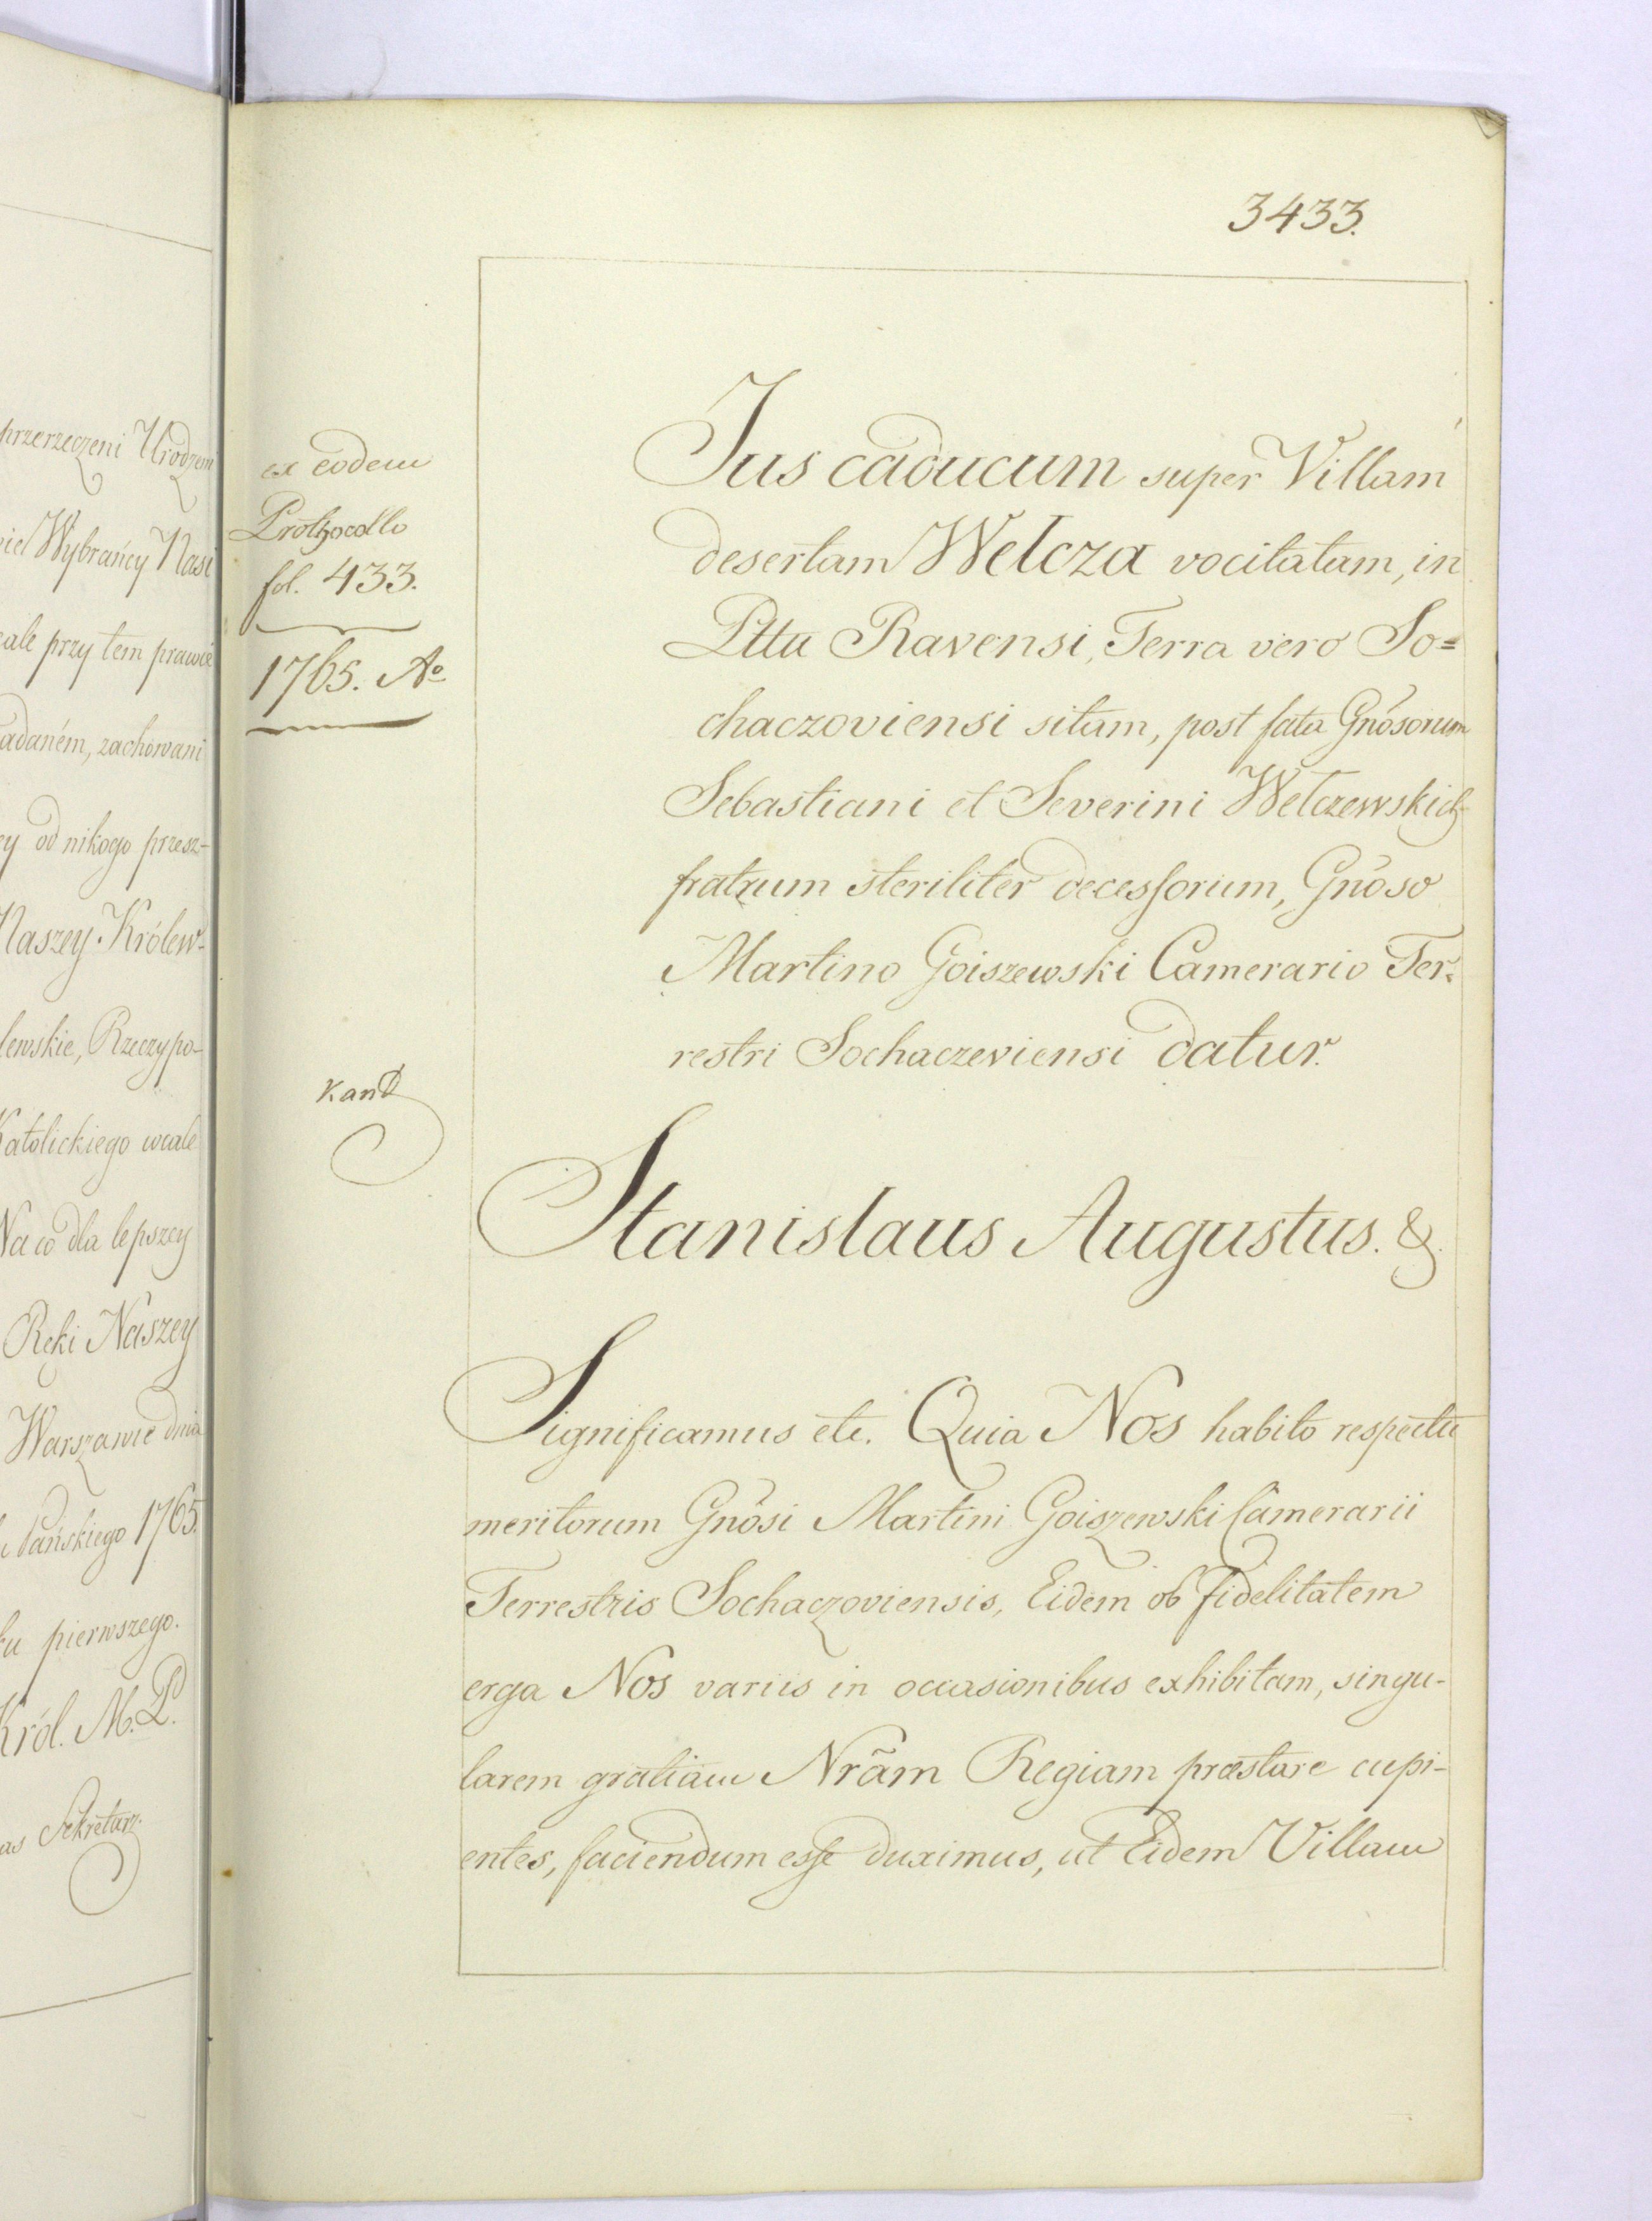 przerzeczeni Urodzeni
Wybrańcy Nasi
ale przy tem prawie
adaném, zachowani
od nikogo przesz-
Naszey Królew-
lewskie, Rzeczypo-
Katolickiego wcale
Na co dla lepszey
Ręki Naszey
Warszawie dnia
Pańskiego 1765.
ku pierwszego.
Król. M. P.
Sekretarz.
3433.
ex eodem
Prothocollo
fol. 433.
1765. Ao
Kand
Jus caducum super Villam
desertam Welcza vocitatam, in
Pttu Ravensi, Terra vero So=
chaczoviensi sitam, post fata Gnosorum
Sebastiani et Severini Welczewskich
fratrum steriliter decessorum, Gnoso
Martino Goiszewski Camerario Ter=
restri Sochaczeviensi datur.
Stanislaus Augustus. &.
Significamus etc. Quia Nos habito respectu
meritorum Gnosi Martini Goiszewski Camerarii
Terrestris Sochaczoviensis, Eidem ob fidelitatem
erga Nos variis in occasionibus exhibitam, singu-
larem gratiam Nrãm Regiam præstare cupi-
entes, faciendum esse duximus, ut Eidem Villam